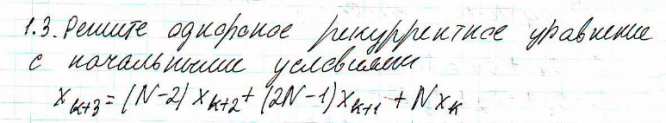 1.3. Решите однородное рекуррентное уравнение
с начальными условиями
x_{k+3} = (N-2) x_{k+2} + (2N-1) x_{k+1} + N x_k